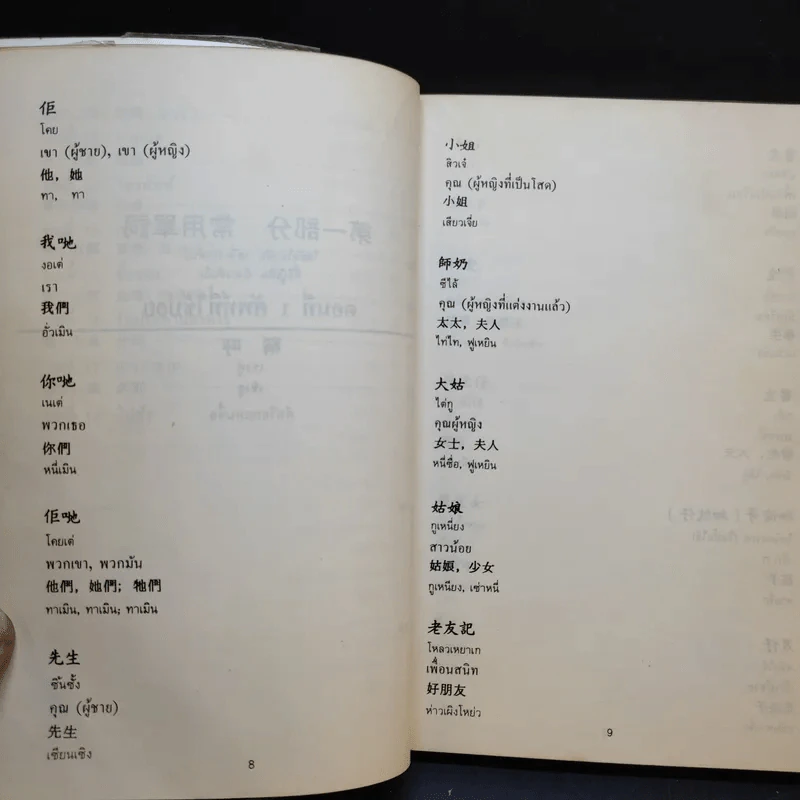 佢
โคย
เขา (ผู้ชาย), เขา (ผู้หญิง)
他，她
ทา, ทา
我哋
งอเต่
เรา
我們
อั่วเมิน
你哋
เนเต่
พวกเธอ
你們
หนี่เมิน
佢哋
โคยเต่
พวกเขา, พวกมัน
他們，她們；牠們
ทาเมิน, ทาเมิน; ทาเมิน
先生
ซิ๊นซั้ง
คุณ (ผู้ชาย)
先生
เซียนเซิง
8
小姐
สิวเจ๋
คุณ (ผู้หญิงที่เป็นโสด)
小姐
เสียวเจี่ย
師奶
ซีไล้
คุณ (ผู้หญิงที่แต่งงานแล้ว)
太太，夫人
ไท่ไท, ฟูเหยิน
大姑
ไต่กู
คุณผู้หญิง
女士，夫人
หนี่ซื่อ, ฟูเหยิน
姑娘
กูเหนี่ยง
สาวน้อย
姑娘，少女
กูเหนียง, เซ่าหนี่
老友記
โหลวเหยาเก
เพื่อนสนิท
好朋友
ห่าวเผิงโหย่ว
9